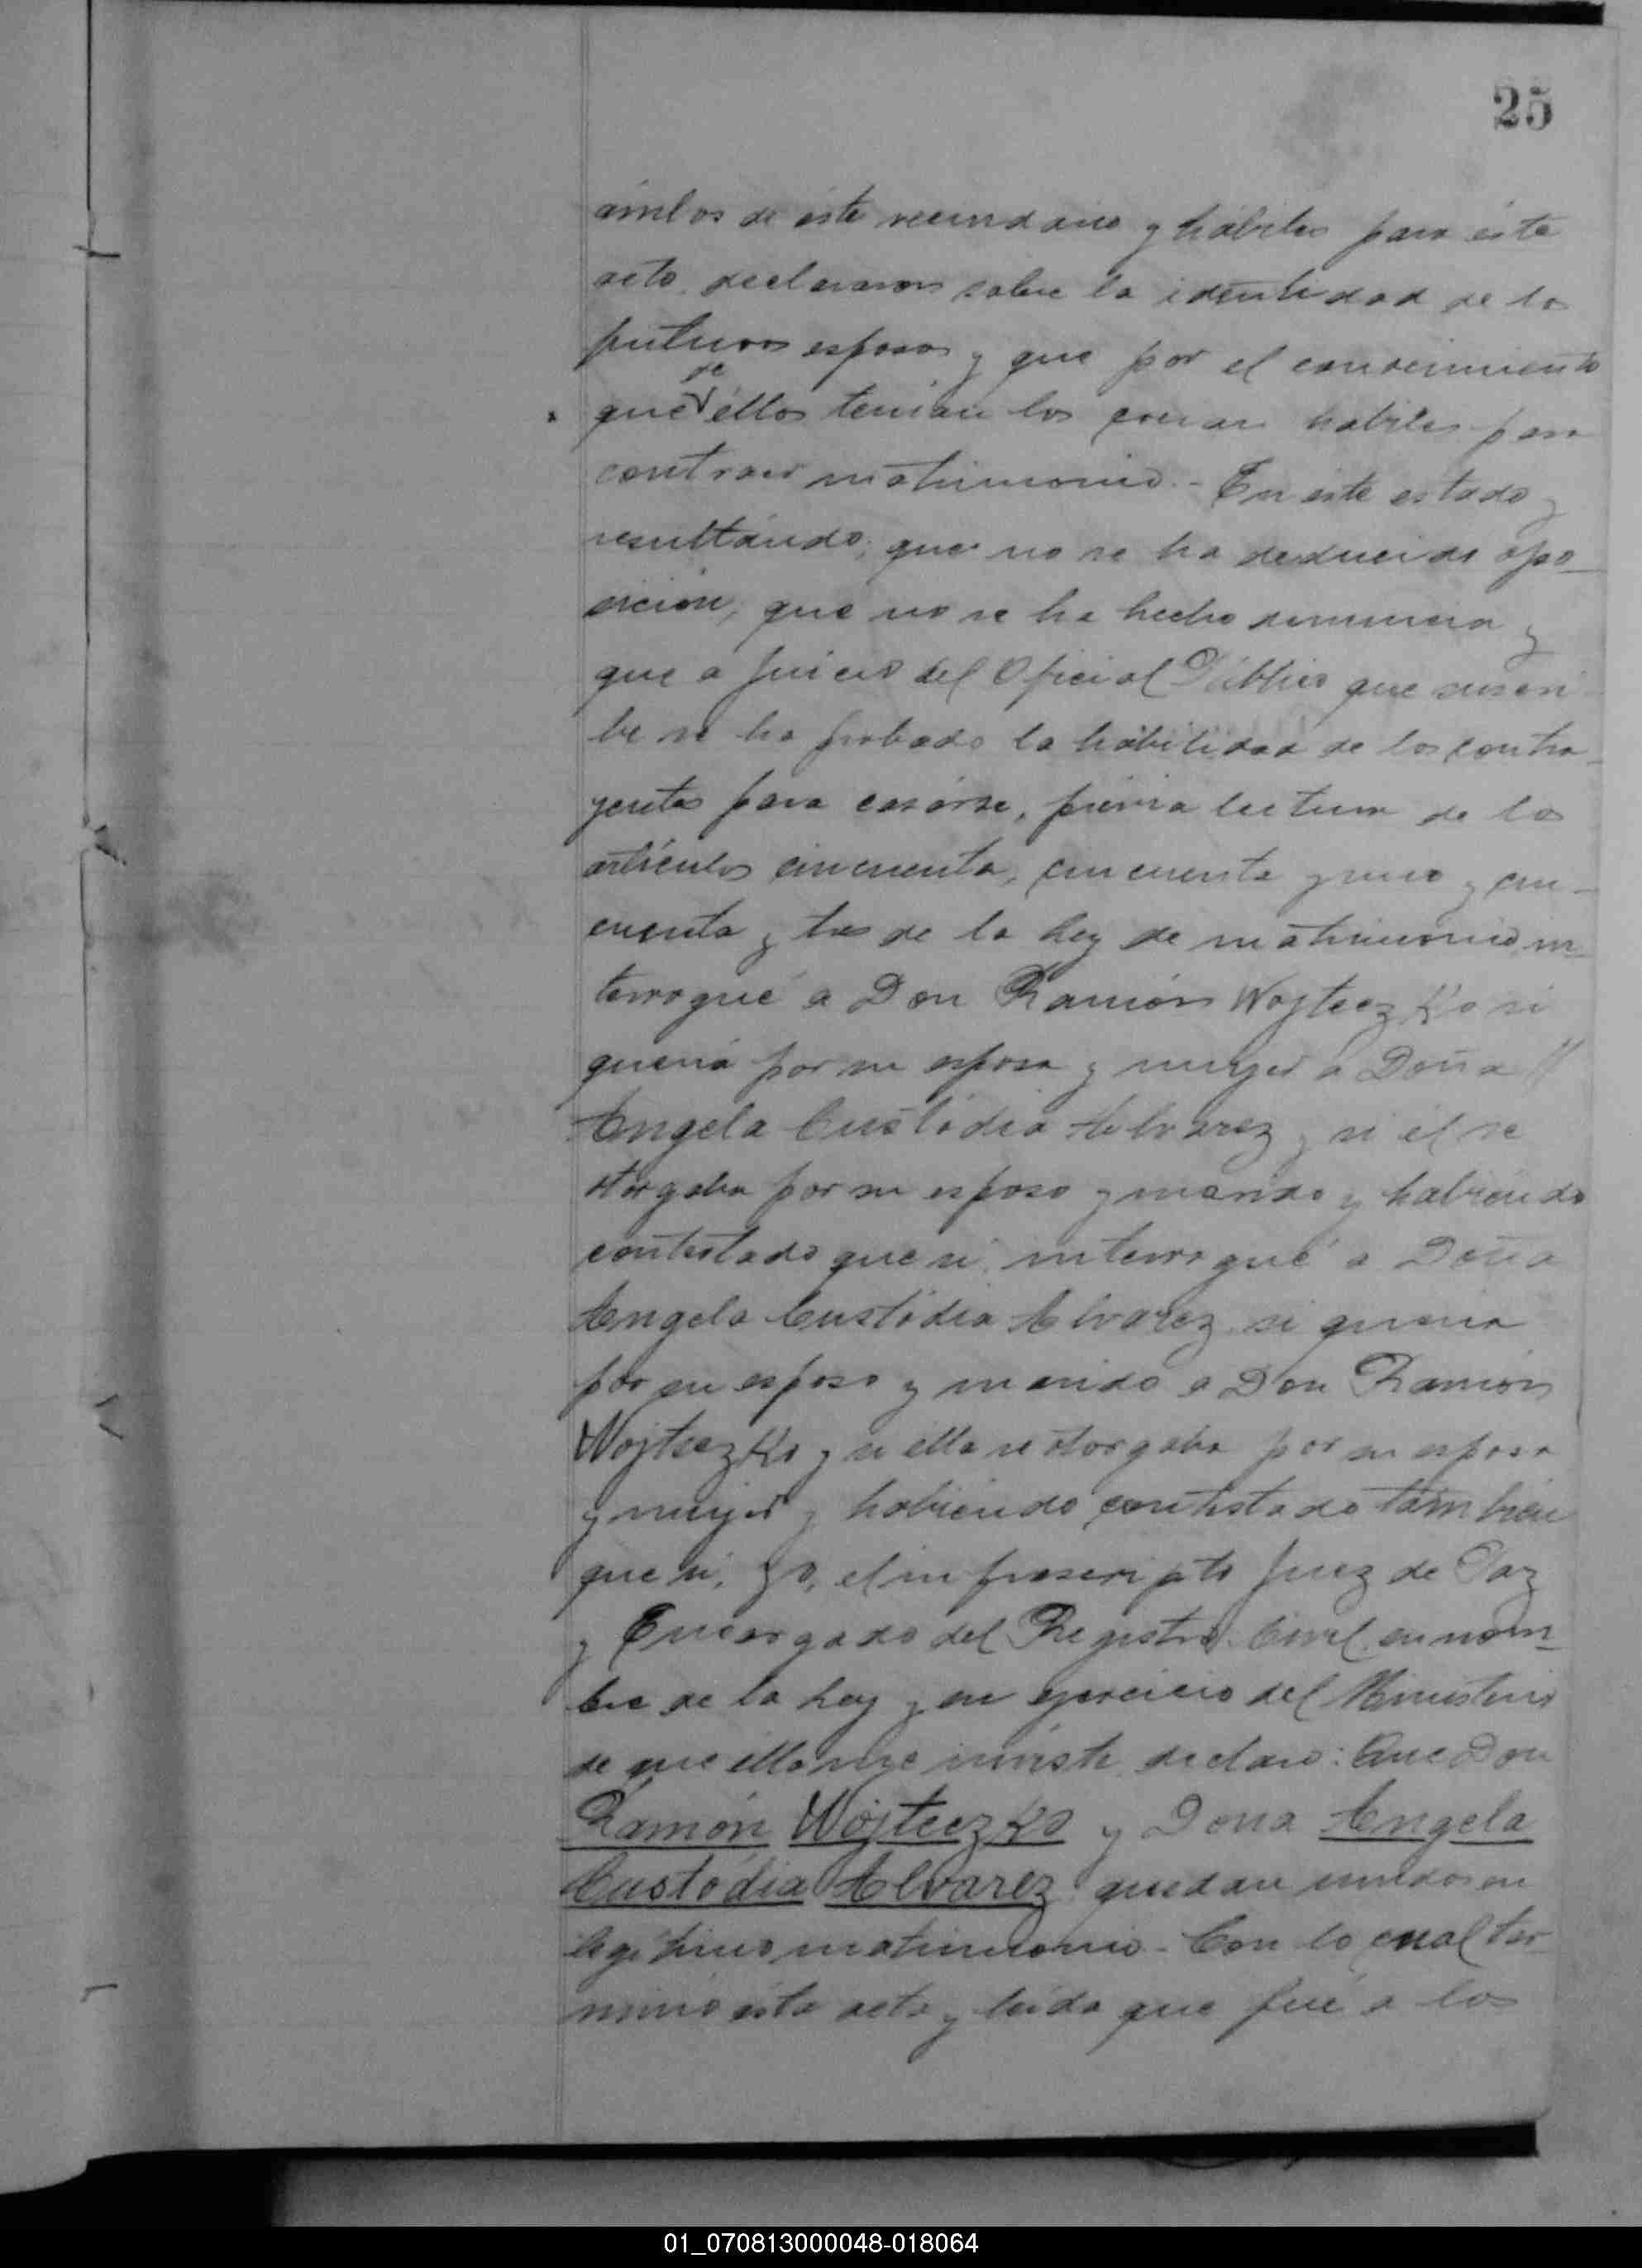 25
ámbos de éste vecindario y hábiles para éste
acto, declararon sobre la identidad de los
futuros esposos y que por el conocimiento
que de éllos tenian los creian habiles para
contraer matrimonio.- En este estado y
resultándo; que no se ha deducido opo-
sicion, que no se ha hecho denuncia y
que a juicio del Oficial Público que suscri-
be se ha probado la hábilidad de los contra-
yentes para casárse, prévia lectura de los
artículos cincuenta, cincuenta y uno y cin-
cuenta y tres de la Ley de matrimonio, in-
terrogué a Don Ramón Wojteczko si
queria por su esposa y mujer a Doña //
Angela Custódia Alvarez y si él se
otorgaba por su esposo y marido y habiendo
contestado que si, interrogué a Doña
Angela Custódia Alvarez si queria
por su esposo y marido a Don Ramón
Wojteczko y si ella se otorgaba por su esposa
y mujer y habiendo contestado tambien
que si, Yo, el infrascripto Juez de Paz
y Encargado del Registro Civil en nom-
bre de la Ley y en ejercicio del Ministerio
de que élla me inviste, declaro: Que Don
Ramón Wójteczko y Dona Angela
Custódia Alvarez quedan unidos en
legítimo matrimonio.- Con lo cual ter-
minó ésta acta y leida que fué a los
01_070813000048-018064